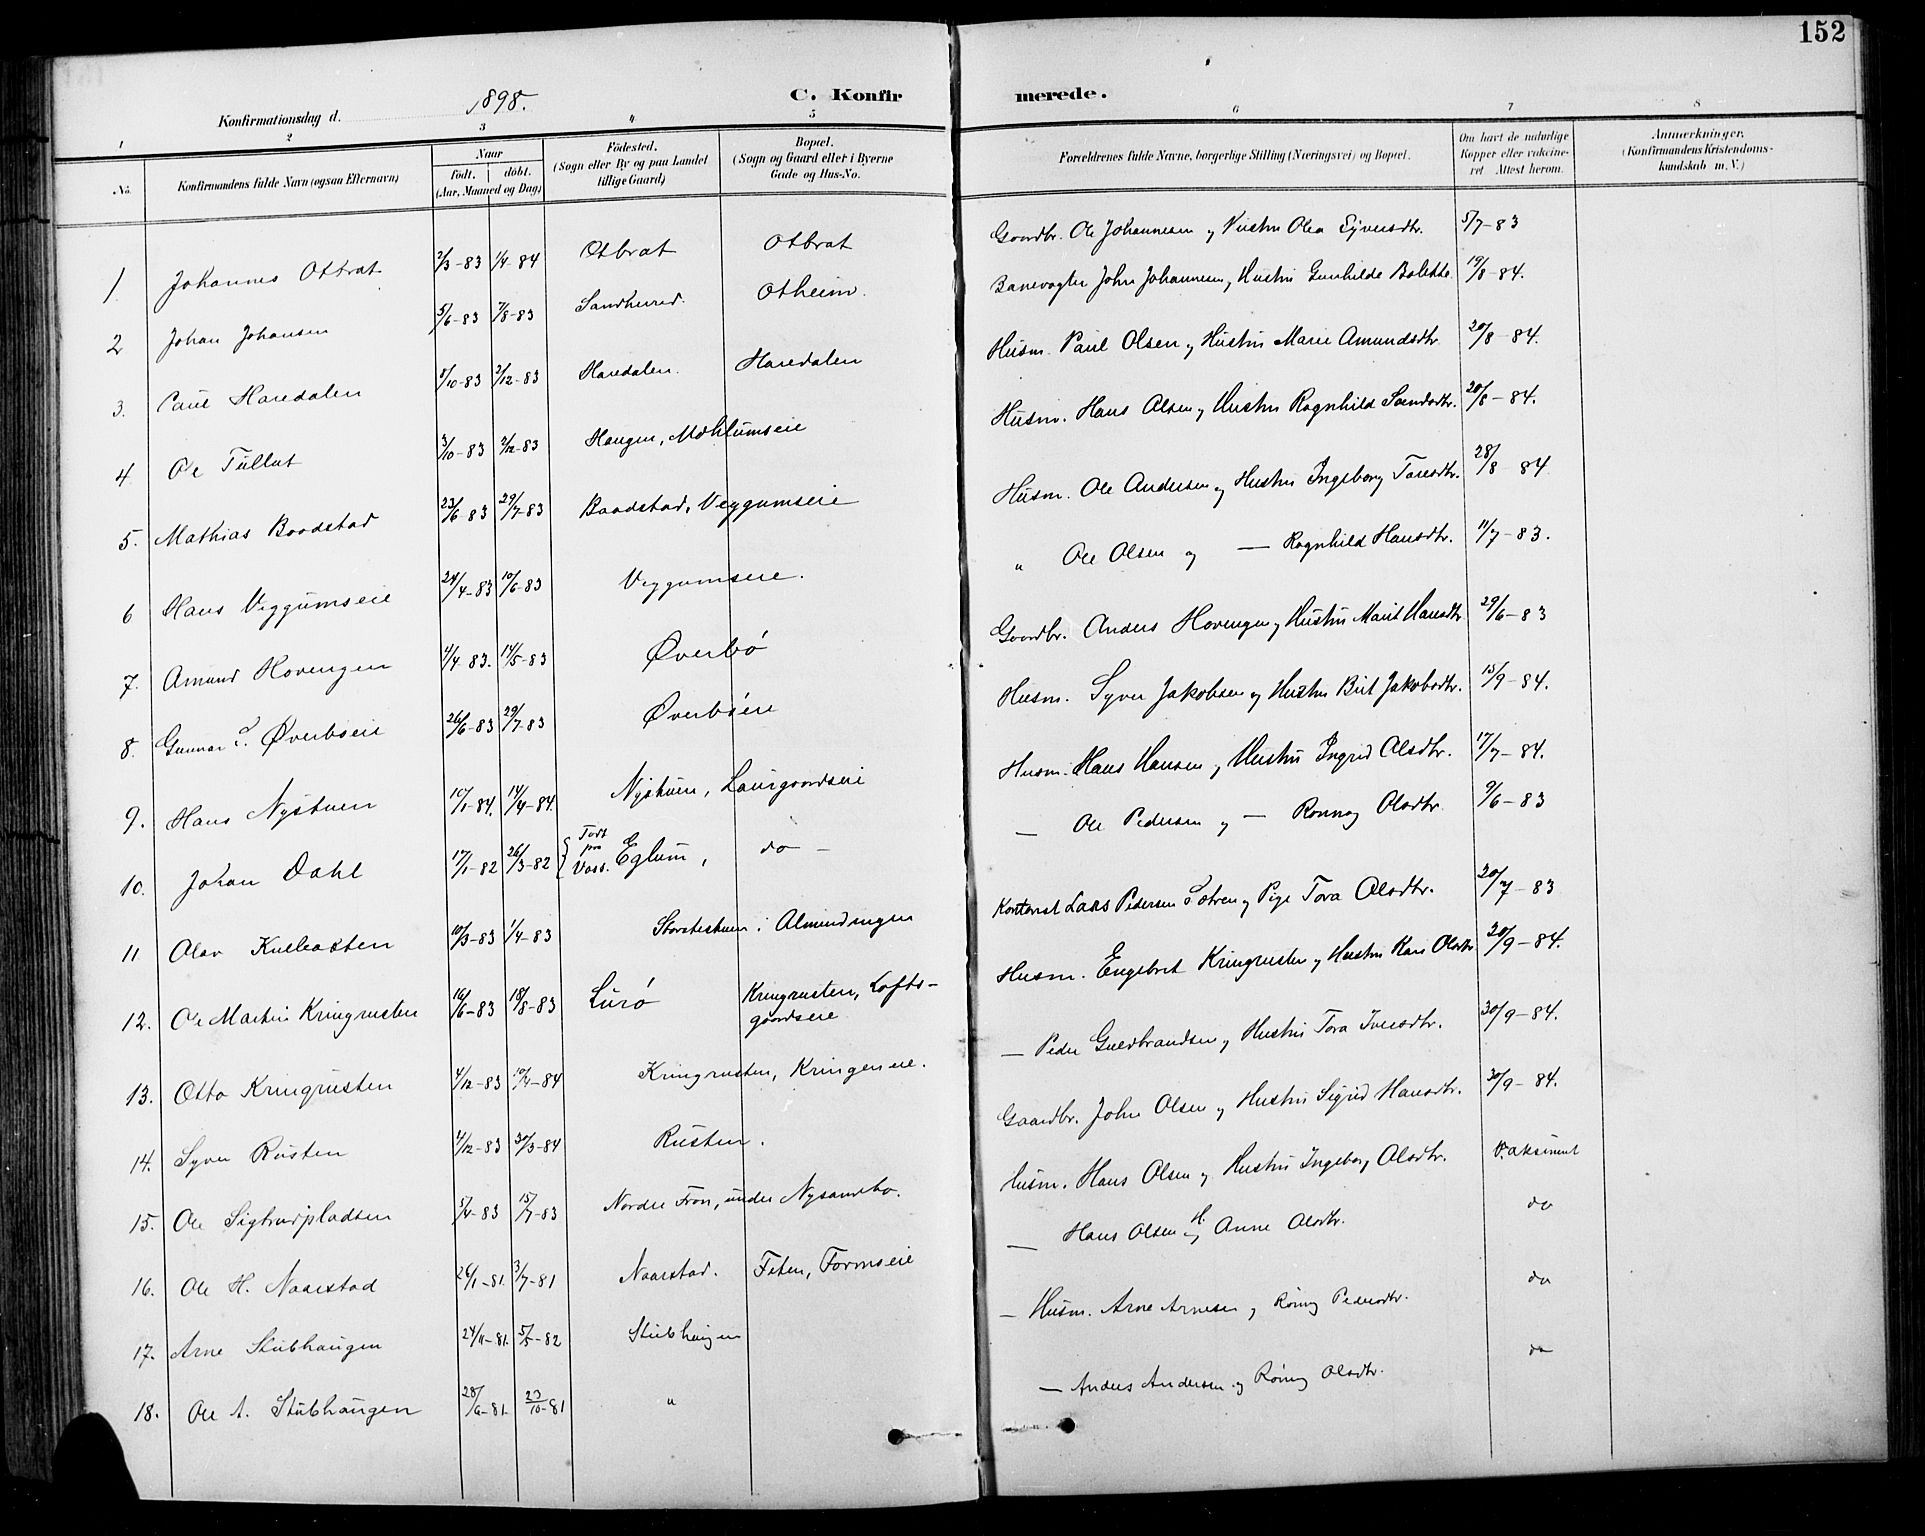 152
C. Konfirmerede.
Konfirmationsdag d. 1898.
1 2 3 4 5 6 7 8
No. Konfirmandens fulde Navn (ogsaa Efternavn) Naar født. døbt. (Aar, Maaned og Dag) Fødested. (Sogn eller By og paa Landet tillige Gaard) Bopæl. (Sogn og Gaard eller i Byerne Gade og Hus-No. Forældrenes fulde Navne, borgerlige Stilling (Næringsvei) og Bopæl. Om havt de naturlige Kopper eller vaccineret Attest herom. Anmærkninger. (Konfirmandens Kristendomskundskab m. V.)
1 Johannes Ottbrat 2/3-83 1/4-84 Otbrat Otbrat Gaardbr. Ole Johannesen og Hustru Olea Syversdtr. 5/7-83
2 Johan Johansen 5/6-83 7/8-83 Sandherred. Otheim. Banevogter John Johannesen og Hustru Gunhilde Bolette 19/8-84.
3. Paul Haredalen 5/10-83 2/12-83 Haredalen. Haredalen Husm. Paul Olsen og Hustru Marie Amundsdtr 20/8-84.
4 Ole Tullut 3/10-83 2/12-83 Haugen, Mæhlumseie Husm. Hans Olsen og Hustru Ragnhild 20/8-84.
5. Mathias Baadstad 23/6-83 29/7-83 Baadstad, Veggumseie Husm. Ole Andersen og Hustru Ingeborg Toresdtr. 28/8 84
6 Hans Veggumseie 24/4-83 10/6-83 Veggumseie. " Ole Olsen og — Ragnhild Hansdtr. 11/7-83.
7. Amund Hovengen 4/4 83. 14/5-83 Øverbø Gaardbr. Anders Hovengen og Hustru Marit Hansdtr 29/6-83
8. Gunnar S. Øverbøeie 26/6-83 29/7-83 Øverbøeie Husm. Syver Jakobsen og Hustru Birit Jakobsdtr. 15/9-84.
9. Hans Nystuen 10/1-84. 14/4-84. Nystuen, Laurgaardseie Husm. Hans Hansen og Hustru Ingrid Olsdtr. 17/7-84.
10. Johan Dahl 17/1-82 26/3-82 Født paa Vass. Eglum, do — — Ole Pedersen og — Rønnog Olsdtr 9/6-83
11 Olav Kulleosten 10/3-83 1/4-83 i Almindingen Kontorist Lars Pedersen Sætren og Pige Tora Olsdtr. 20/7-83
12. Ole Martin Kringrusten 16/6-83 18/8-83 Lurø Kringrusten, Loftsgaardseie Husm. Engebret Kringrusten og Hustru Kari Olsdtr 20/9-84.
13. Otto Kringrusten 4/12-83 10/4-84 Kringrusten, Kringeneie. — Peder Guldbrandsen og Hustru Tora Iversdtr. 30/9-84.
14. Syver Rusten 4/12-83 30/3-84 Rusten. Gaardbr. John Olsen og Hustru Sigrid Hansdtr. 30/9-84.
15. Ole Sigtrudpladsen 5/4-83 15/7-83 Nordre Fron, under Nysandbo. Husm. Hans Olsen og Hustru Ingeborg Olsdtr.
16. Ole H. Naarstad 26/1-81. 3/7-81 Naarstad. Feten, Formseie — Hans Olsen og H. Anne Olsdtr. do
17. Arne Stubhaugen 24/11-81. 5/5-82 Stubhaugen — Husm. Arne Arnesen og Rønug Pedersdtr. do
18. Ole A. Stubhaugen 28/6-81. 23/10-81 " — Anders Andersen og Rønug Olsdtr. do